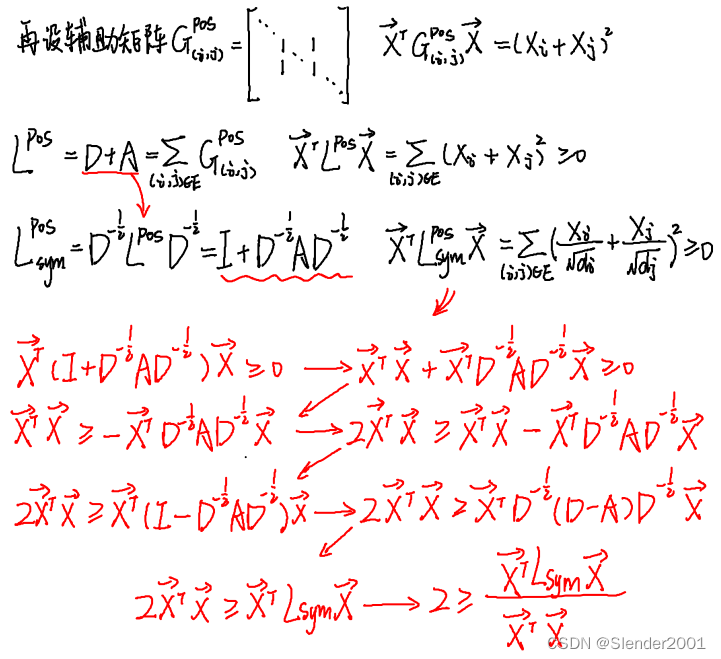 再设辅助矩阵 G_{(i,j)}^{pos} = [⋱ 1 1 1 1 ⋱] \vec{X}^T G_{(i,j)}^{pos} \vec{X} = (X_i + X_j)^2
L^{pos} = D+A = \sum_{(i,j)∈E} G_{(i,j)}^{pos} \vec{X}^T L^{pos} \vec{X} = \sum_{(i,j)∈E} (X_i + X_j)^2 ≥ 0
L_{sym}^{pos} = D^{-\frac{1}{2}} L^{pos} D^{-\frac{1}{2}} = I + D^{-\frac{1}{2}} A D^{-\frac{1}{2}} \vec{X}^T L_{sym}^{pos} \vec{X} = \sum_{(i,j)∈E} (\frac{X_i}{\sqrt{d_i}} + \frac{X_j}{\sqrt{d_j}})^2 ≥ 0
\vec{X}^T (I + D^{-\frac{1}{2}} A D^{-\frac{1}{2}}) \vec{X} ≥ 0 → \vec{X}^T \vec{X} + \vec{X}^T D^{-\frac{1}{2}} A D^{-\frac{1}{2}} \vec{X} ≥ 0
\vec{X}^T \vec{X} ≥ -\vec{X}^T D^{-\frac{1}{2}} A D^{-\frac{1}{2}} \vec{X} → 2\vec{X}^T \vec{X} ≥ \vec{X}^T \vec{X} - \vec{X}^T D^{-\frac{1}{2}} A D^{-\frac{1}{2}} \vec{X}
2\vec{X}^T \vec{X} ≥ \vec{X}^T (I - D^{-\frac{1}{2}} A D^{-\frac{1}{2}}) \vec{X} → 2\vec{X}^T \vec{X} ≥ \vec{X}^T D^{-\frac{1}{2}} (D-A) D^{-\frac{1}{2}} \vec{X}
2\vec{X}^T \vec{X} ≥ \vec{X}^T L_{sym} \vec{X} → 2 ≥ \frac{\vec{X}^T L_{sym} \vec{X}}{\vec{X}^T \vec{X}}
CSDN @Slender2001